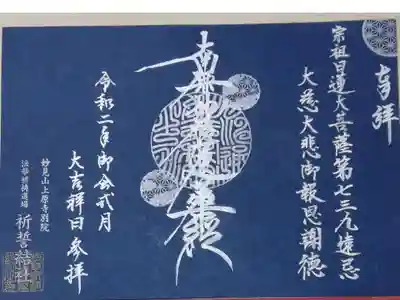 奉拝
宗祖日蓮大菩薩第七三九遠忌
大慈大悲御報恩謝徳
南無妙法蓮華経
令和二年御会式月
大吉祥日参拝
妙見山上原寺別院
法華祈祷道場
祈誓結社